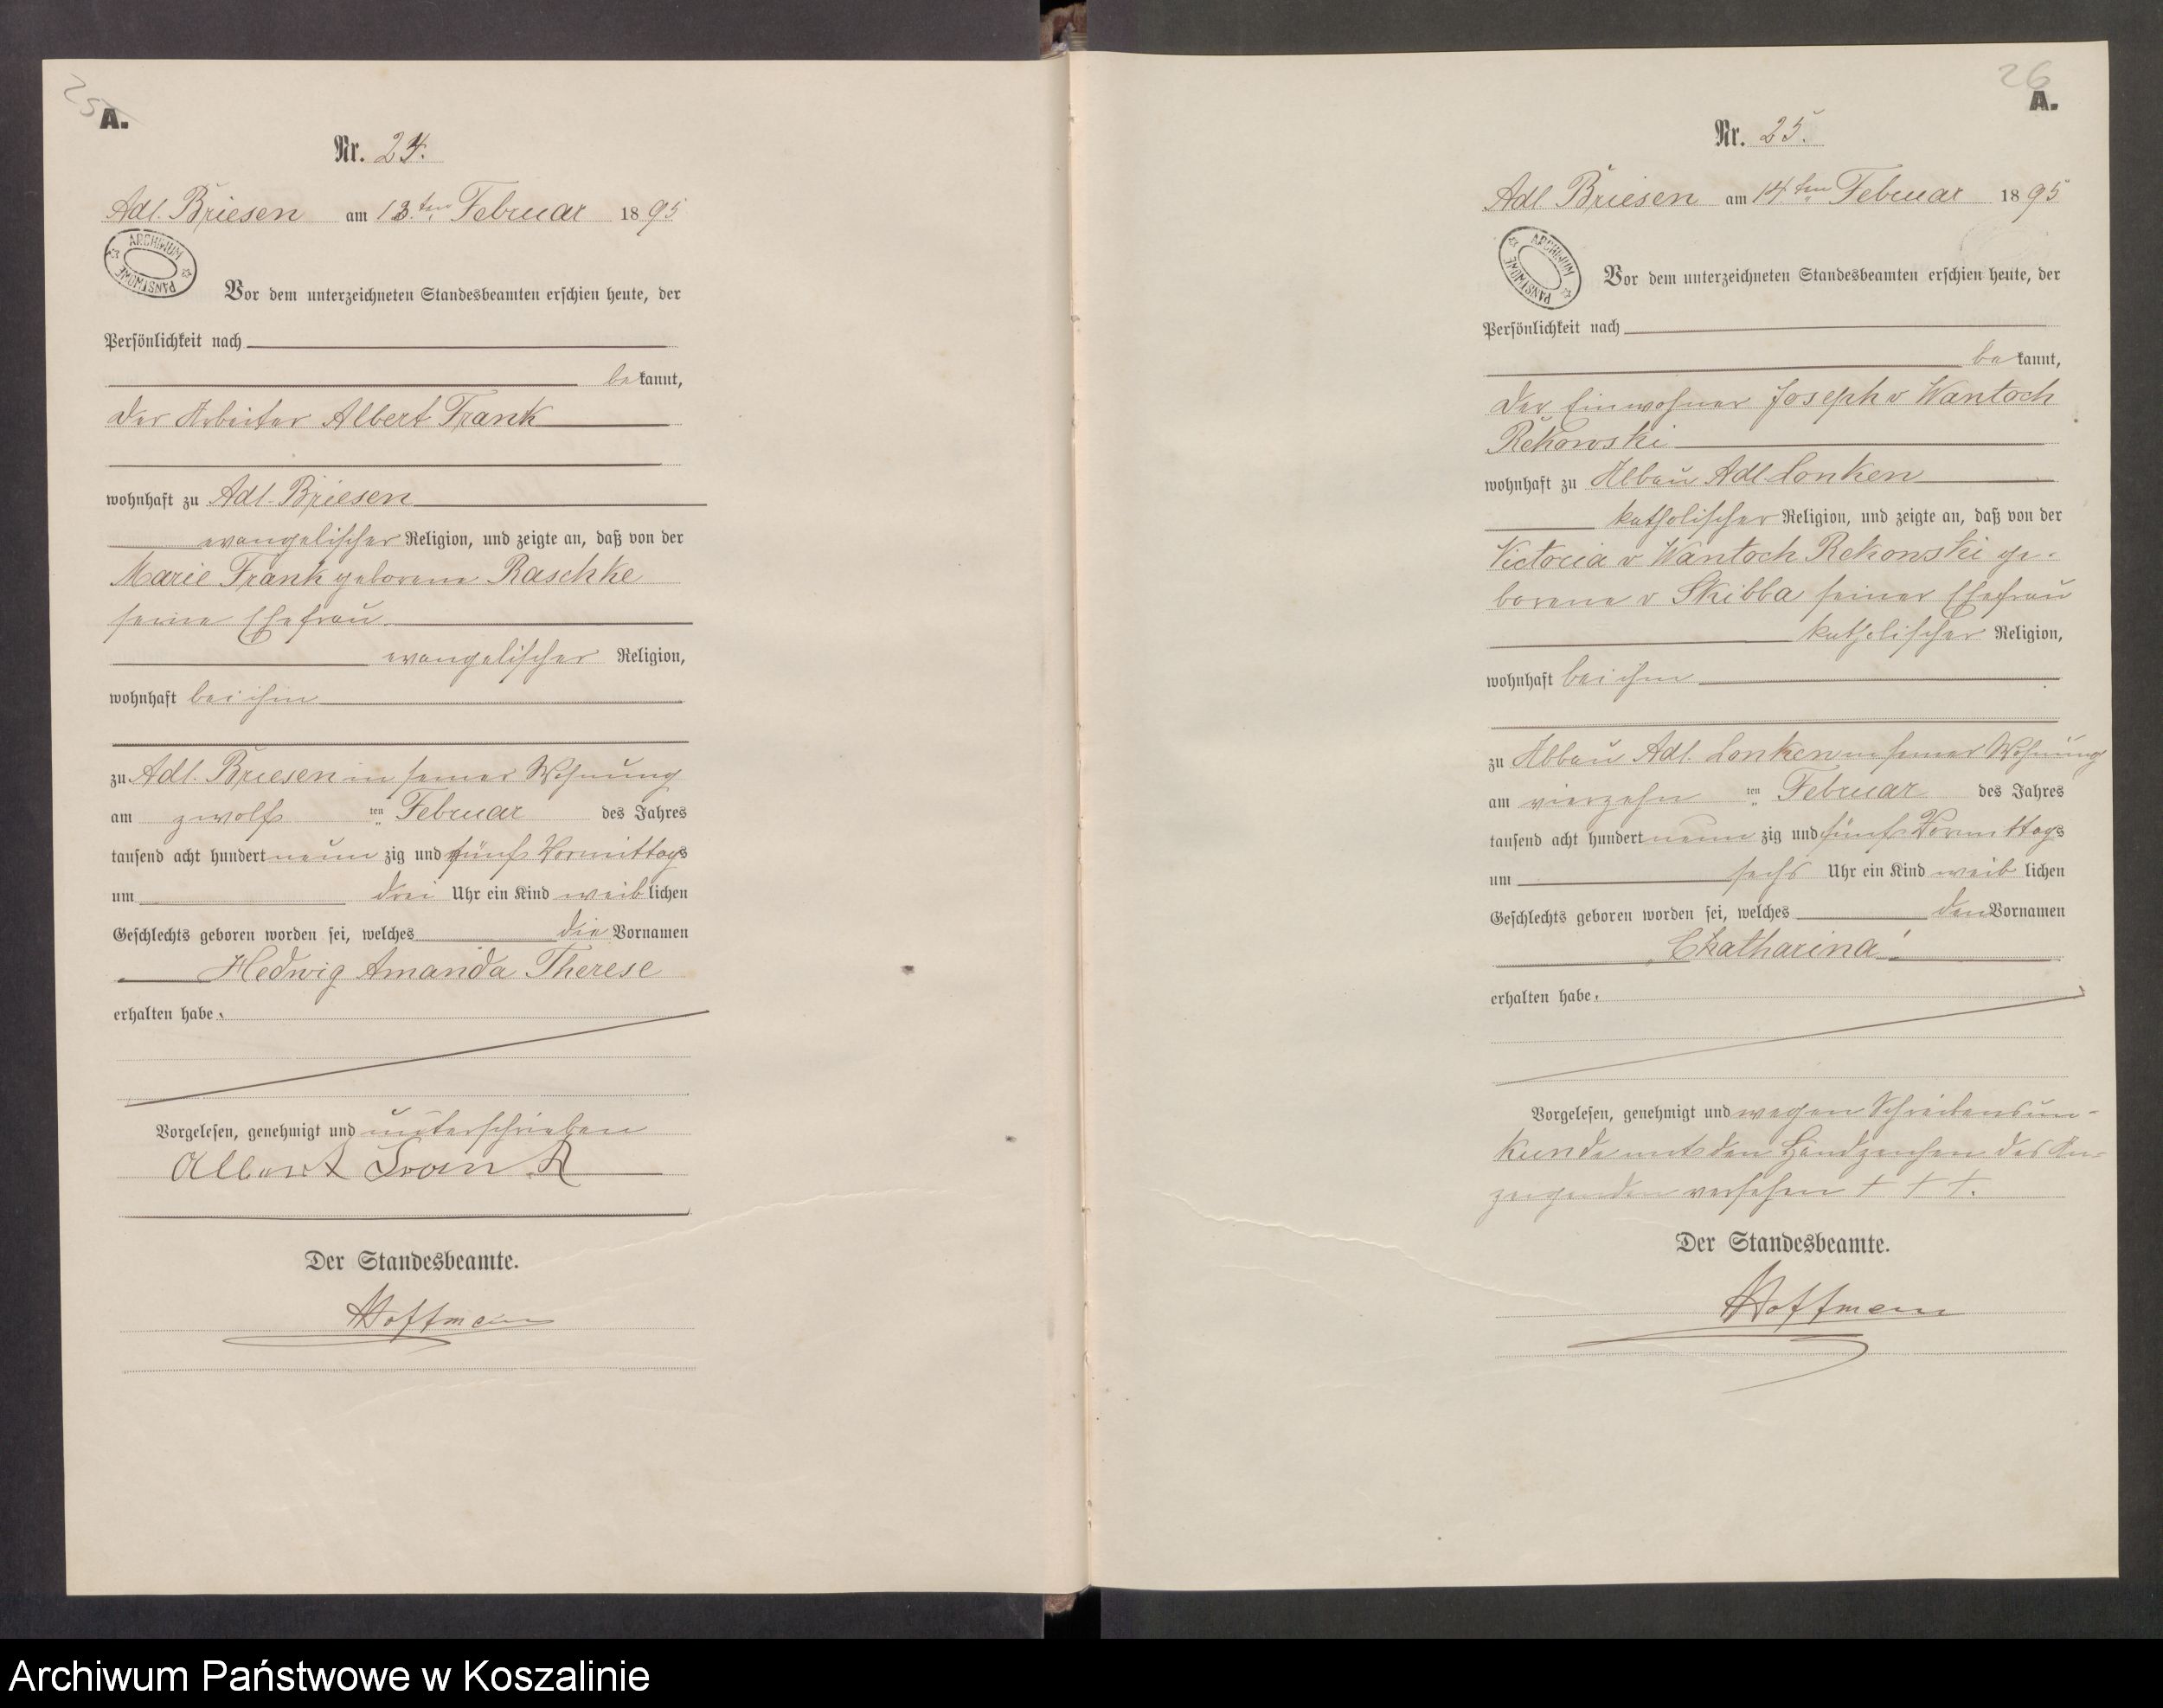 25
A.
Nr. 24.
Adl. Briesen am 13.ten Februar 1895
ARCHIWUM PAŃSTWOWE
Vor dem unterzeichneten Standesbeamten erschien heute, der
Persönlichkeit nach
bekannt,
der Arbeiter Albert Frank
wohnhaft zu Adl. Briesen
evangelischer Religion, und zeigte an, daß von der
Marie Frank geborene Raschke
seine Ehefrau
evangelischer Religion,
wohnhaft bei ihm
zu Adl. Briesen in seiner Wohnung
am zwölf ten Februar des Jahres
tausend acht hundert neun zig und fünf Vormittags
um drei Uhr ein Kind weiblichen
Geschlechts geboren worden sei, welches die Vornamen
Hedwig Amanda Therese
erhalten habe.
Vorgelesen, genehmigt und unterschrieben
Albert Frank
Der Standesbeamte.
Hoffmann
26
A.
Nr. 25.
Adl Briesen am 14.ten Februar 1895
ARCHIWUM PAŃSTWOWE
Vor dem unterzeichneten Standesbeamten erschien heute, der
Persönlichkeit nach
bekannt,
der Einwohner Joseph v Wantoch
Rekowski
wohnhaft zu Abbau Adl Lonken
katholischer Religion, und zeigte an, daß von der
Victoria v Wantoch Rekowski ge-
borene v Skibba seiner Ehefrau
katholischer Religion,
wohnhaft bei ihm
zu Abbau Adl. Lonken in seiner Wohnung
am vierzehn ten Februar des Jahres
tausend acht hundert neun zig und fünf Vormittags
um sechs Uhr ein Kind weiblichen
Geschlechts geboren worden sei, welches den Vornamen
Katharina
erhalten habe.
Vorgelesen, genehmigt und wegen Schreibensun-
kunde mit den Handzeichen des An-
zeigenden versehen + + +.
Der Standesbeamte.
Hoffmann
Archiwum Państwowe w Koszalinie